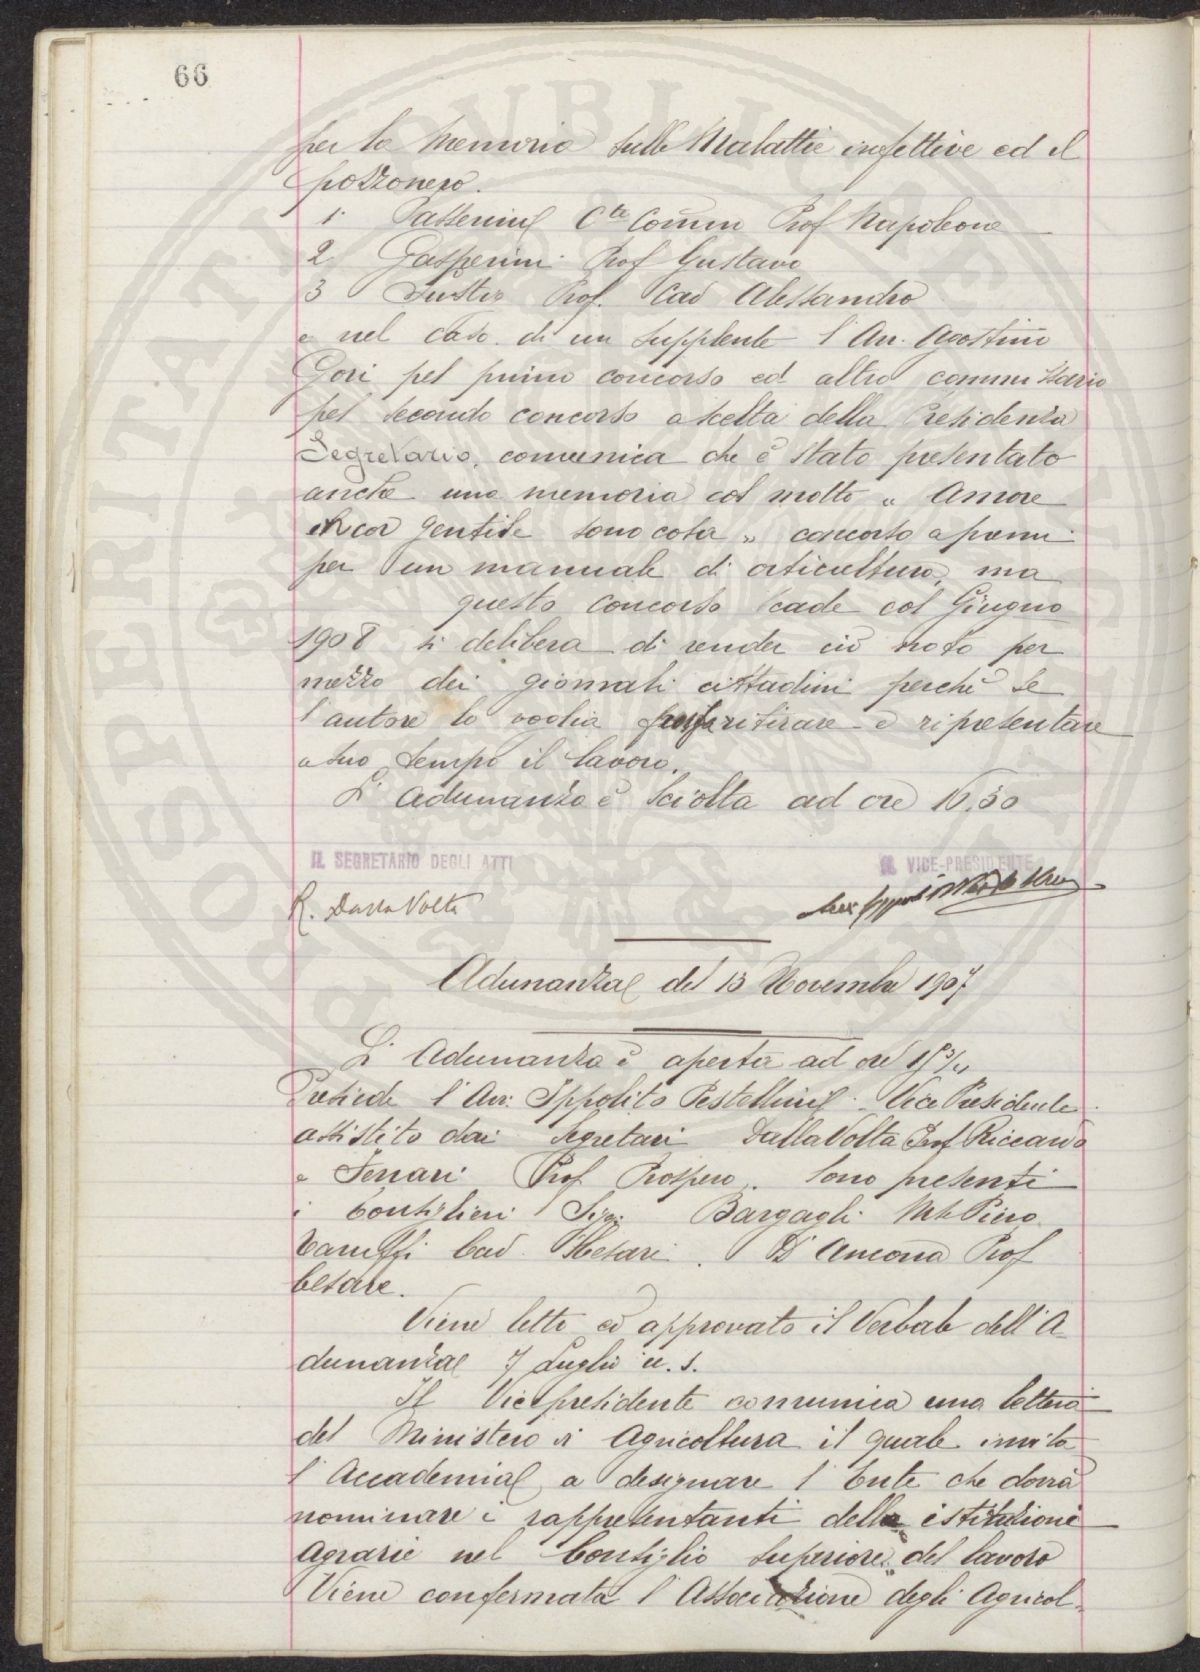 66
per la Memoria sulle Malattie infettive ed il
pozzonero.
1. Passerini Cte Comm Prof Napoleone
2 Gasperini Prof Gustavo
3 Prof. Cav Alessandro
e nel caso di un supplente l'Avv. Agostino
Gori pel primo concorso ed altro commissario
pel secondo concorso a scelta della Presidenza
Segretario, comunica che è stato presentato
anche una memoria col motto „ Amore
e cor gentile sono cosa „ concorso a premi
per un manuale di orticultura, ma
questo concorso scade col Giugno
1908 si delibera di render ciò noto per
mezzo dei giornali cittadini perchè se
l'autore lo voglia ritirare e ripresentare
a suo tempo il lavoro.
L'adunanza è sciolta ad ore 16,30
IL SEGRETARIO DEGLI ATTI
IL VICE-PRESIDENTE
R. Dalla Volta
Adunanza del 13 Novembre 1907
L'Adunanza è aperta ad ore 15 3/4
Presiede l'Avv. Ippolito Pestellini Vice Presidente
assistito dai Segretari Dalla Volta Prof Riccardo
e Ferrari Prof Prospero. Sono presenti
i Consiglieri Sigg. Bargagli Mse Piero
Caruffi Cav. Cesari. D'Ancona Prof
Cesare.
Viene letto ed approvato il Verbale dell'A
dunanza 7 Luglio u. s.
Il Vicepresidente comunica una lettera
del Ministero di Agricoltura il quale invita
l'Accademia a designare l'Ente che dovrà
nominare i rappresentanti delle istituzioni
Agrarie nel Consiglio Superiore del lavoro
Viene confermata l'Associazione degli Agricol-